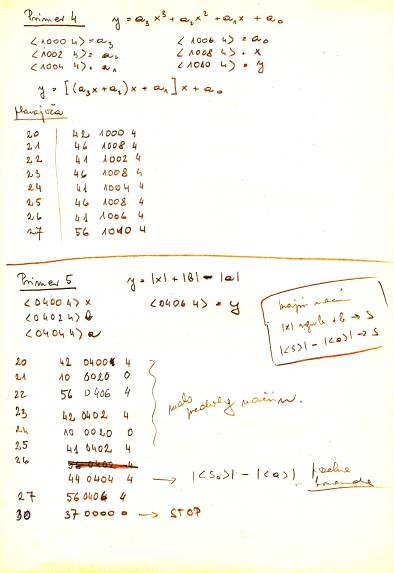 Primer 4 y = a₃x³ + a₂x² + a₁x + a₀
<1000 4> = a₃ <1006 4> = a₀
<1002 4> = a₂ <1008 4> = x
<1004 4> = a₁ <1010 4> = y
y = [(a₃x+a₂)x + a₁]x + a₀
20 42 1000 4
21 46 1008 4
22 41 1002 4
23 46 1008 4
24 41 1004 4
25 46 1008 4
26 41 1006 4
27 56 1010 4
Primer 5 y = |x| + |b| - |a|
<0400 4> x <0406 4> = y
<0402 4> b
<0404 4> a
|x| + b → S
|<S>| - |<a>| → S
20 42 0400 4
21 10 0020 0
22 56 0406 4
23 42 0402 4
24 10 0020 0
25 41 0402 4
26 56 0402 4
44 0404 4 → |<S₀>| - |<a>|
27 56 0406 4
30 37 0000 0 → STOP